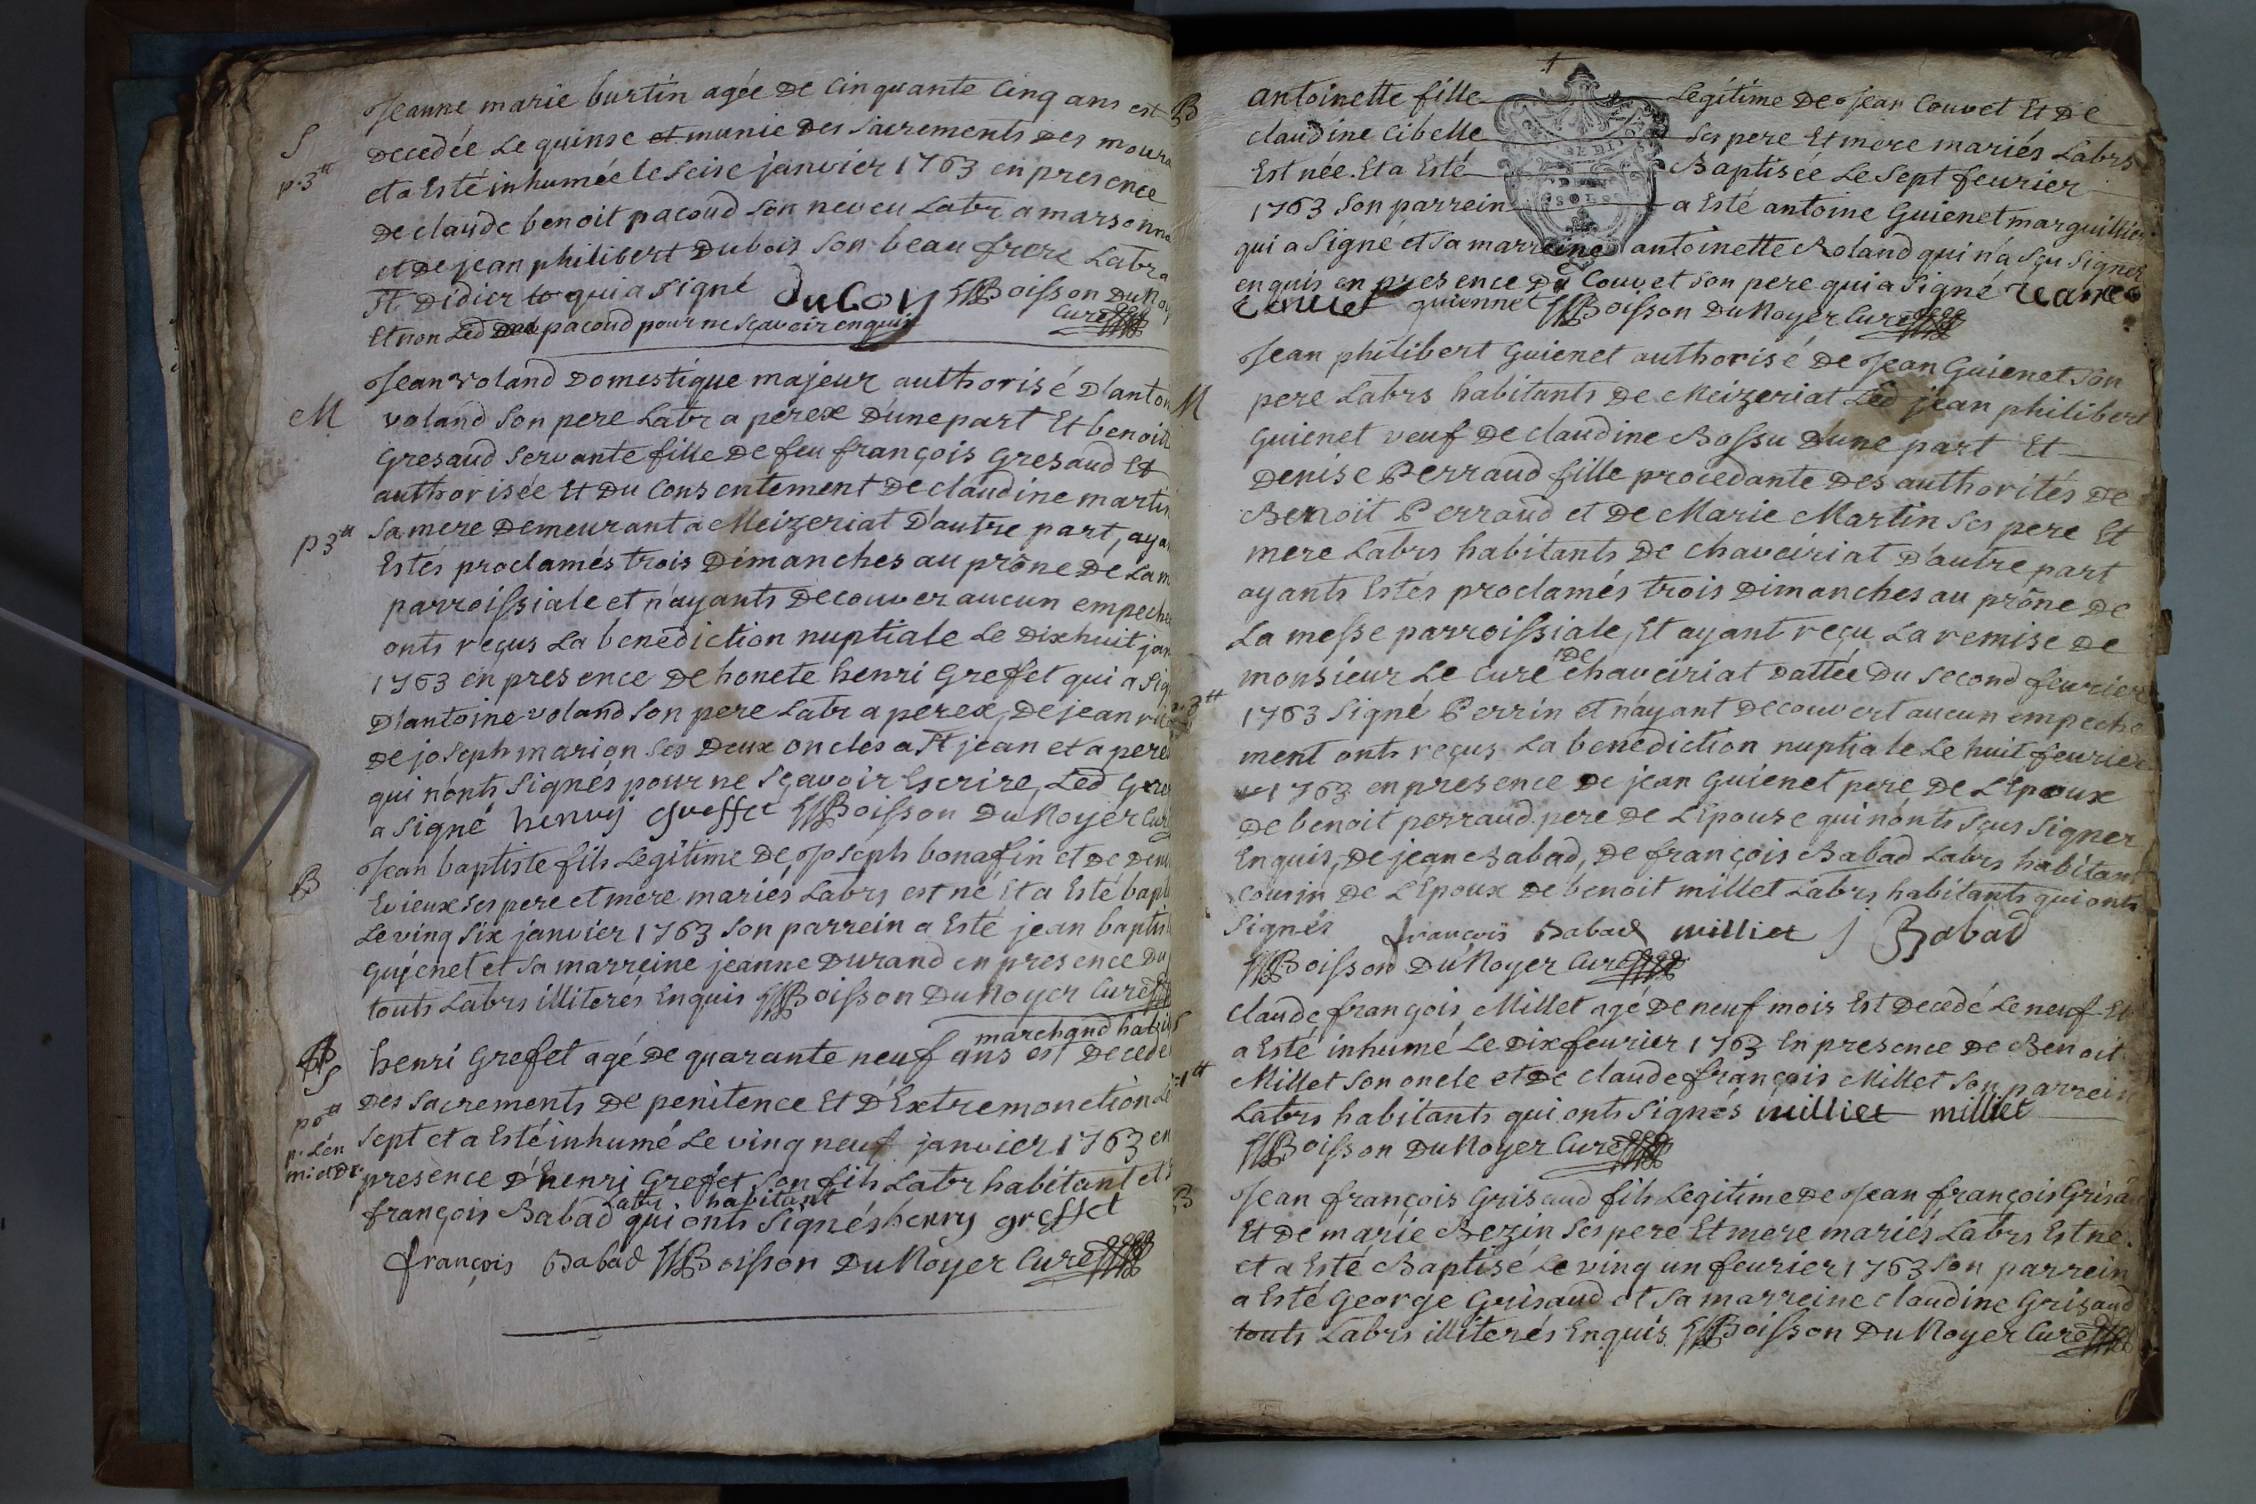 Jeanne marie burtin agée De Cinquante Cinq ans est
S
Decedée Le quinse et munie Des Sacrements Des moura
p. 3tt
et a Esté inhumée le Seise janvier 1763 en presence
De claude benoit pacoud Son neveu Labr a marsonna
et De jean philibert Dubois Son beau frere Labr a
St Didier qui a Signé duboy Boisson DuNoy
Curé
Et non Led pacoud pour ne Sçavoir enquis
Jean voland Domestique majeur authorisé D'anton
M
voland Son pere Labr a perex D'une part Et benoit
Gresaud Servante fille De feu françois Gresaud Et
authorisée Et Du Consentement De claudine martin
p 3tt
Sa mere Demeurant a Meizeriat D'autre part, aya
Estés proclamés trois Dimanches au prône De La m
parroissiale et n'ayants Decouver aucun empeche
onts reçus La benediction nuptiale Le Dixhuit jan
1763 en presence De honete henri Grefet qui a Sig
D'antoine voland Son pere Labr a perex, De jean
De joseph marion Ses Deux oncles a St jean et a pere
qui n'onts Signés pour ne Sçavoir Escrire, Led Gre
a Signé henrij Greffet Boisson DuNoyer Cur
Jean baptiste fils Legitime De Joseph bonafin et De Den
B
Evieux Ses pere et mere mariés Labrs est né Et a Esté bapt
Le ving Six janvier 1763 Son parrein a Esté jean baptis
Guyenet et Sa marreine jeanne Durand en presence Du
touts Labrs illiterés Enquis Boisson DuNoyer Curé
marchand habi
henri Grefet agé De quarante neuf ans est Decedé
S
Des Sacrements De penitence Et D'Extremonction Le
p 6tt
Sept et a Esté inhumé Le ving neuf janvier 1763 en
p. Len
m: et Dr.
presence D'henri Grefet Son fils Labr habitant et
Labr habitant
françois Babad qui onts Signés henry greffet
françois Babad Boisson DuNoyer Curé
B
antoinette fille Legitime De Jean Couvet Et De
claudine Cibelle Ses pere Et mere mariés Labrs
Est née. Et a Esté Baptisée Le Sept feurier
1763 Son parrein a Esté antoine Guienet marguillier
qui a Signé et Sa marreine antoinette Roland qui n'a Sçu Signer
enquis en presence Du Couvet Son pere qui a Signé
Couvet guiennet Boisson DuNoyer Curé
Jean philibert Guienet authorisé De Jean Guienet Son
M
pere Labrs habitants De Meizeriat Led jean philibert
Guienet veuf De claudine Bossu D'une part Et
Denise Perraud fille procedante Des authorités De
Benoit Perraud et De Marie Martin Ses pere Et
mere Labrs habitants De chaveiriat D'autre part
ayants Estés proclamés trois Dimanches au prône De
La messe parroissiale, Et ayant reçu La remise De
monsieur Le Curé De chaveiriat Dattée Du Second feurier
p. 3tt
1763 Signé Perrin et n'ayant Decouvert aucun empeche
ment onts reçus La benediction nuptiale Le huit feurier
1763 en presence De jean Guienet pere De L'Epoux
De benoit perraud pere De L'Epouse qui n'onts Sçus Signer
Enquis, De jean Babad, De françois Babad Labrs habitant
Cousin De L'Epoux De benoit millet Labrs habitants qui onts
Signés françois Babad milliet J Babad
Boisson DuNoyer Curé
claude françois Millet agé De neuf mois Est Decedé Le neuf Et
a Esté inhumé Le Dix feurier 1763 En presence De Benoit
1tt
Millet Son oncle et De claude françois Millet Son parrein
Labrs habitants qui onts Signés milliet milliet
Boisson DuNoyer Curé
Jean françois Grisaud fils Legitime De Jean françois Grisau
B
Et De marie Bezin Ses pere Et mere mariés Labrs Est né.
et a Esté Baptisé Le ving un feurier 1763 Son parrein
a Esté George Grisaud et Sa marreine claudine Grisaud
touts Labrs illiterés Enquis Boisson DuNoyer Curé